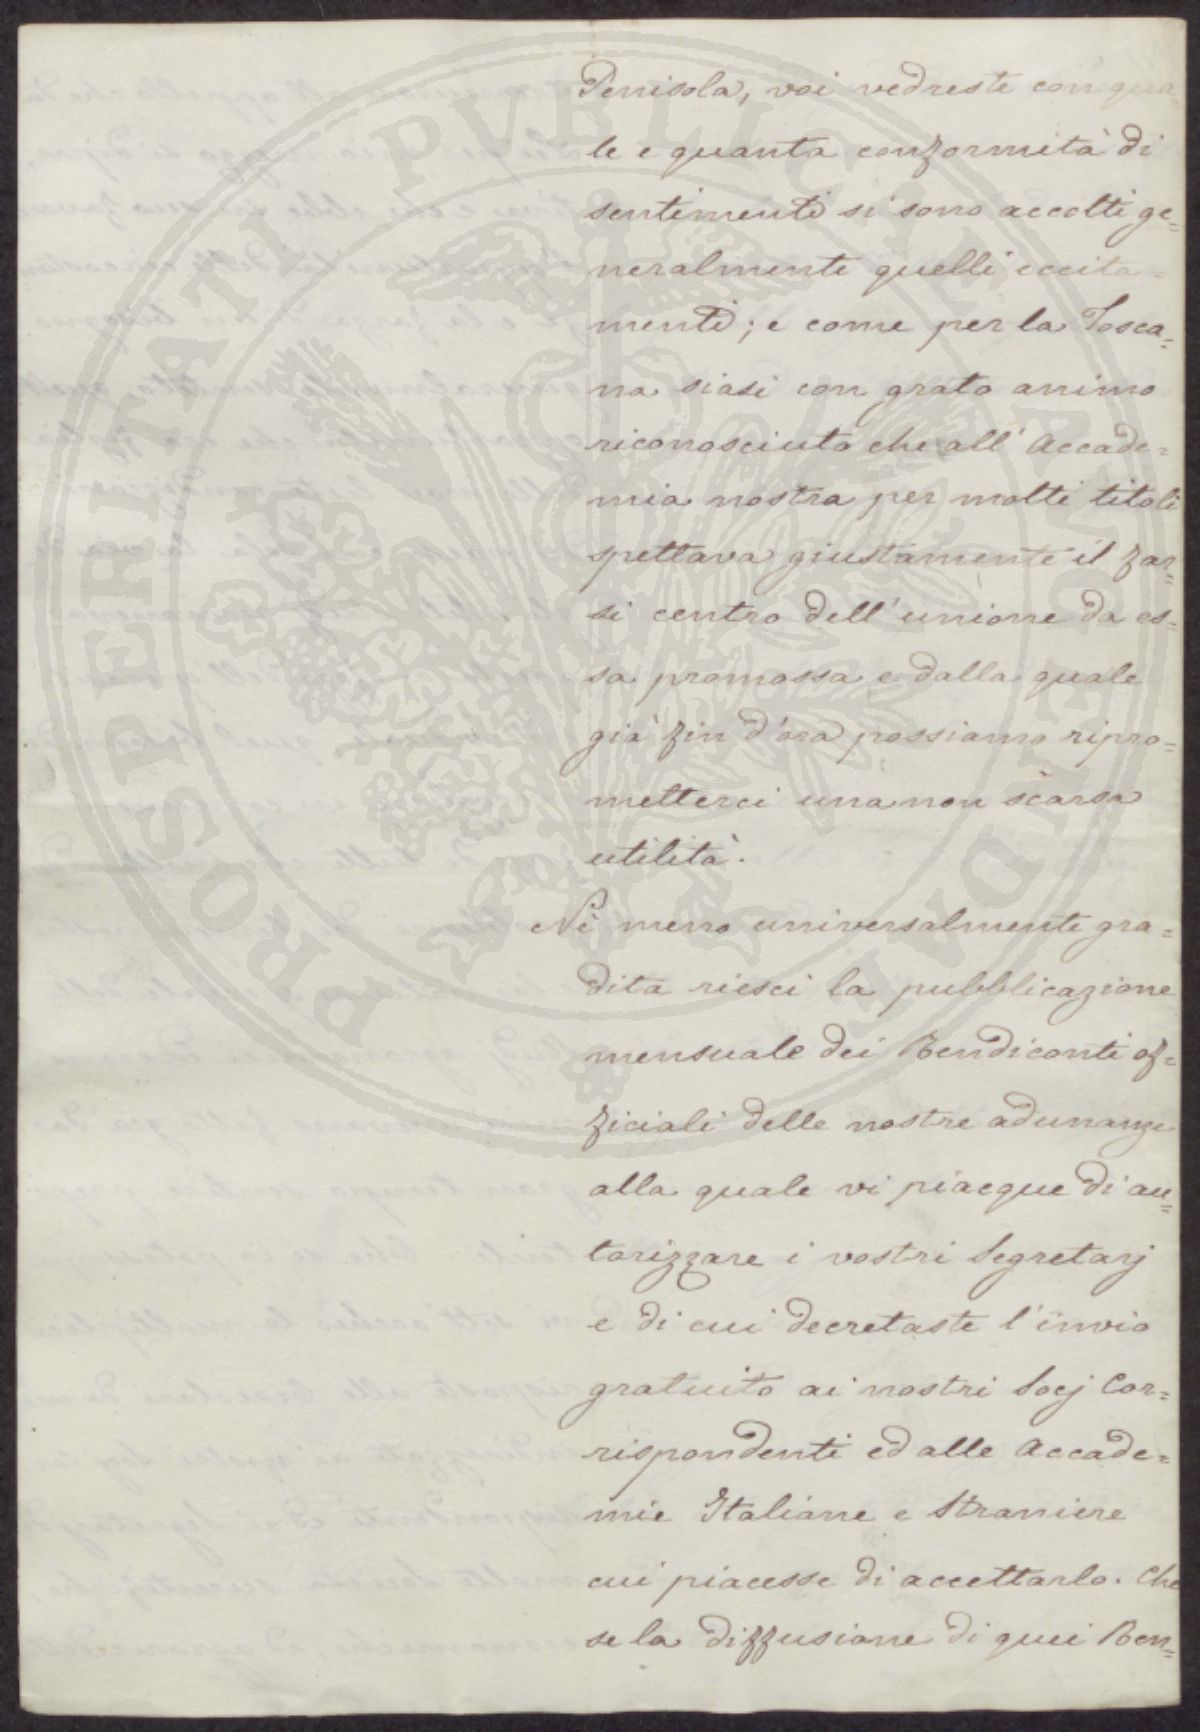 Penisola, voi vedreste con qua=
le e quanta conformità di
sentimenti si sono accolti ge=
neralmente quelli eccita=
menti; e come per la Tosca=
na siasi con grato animo
riconosciuto che all' Accade=
mia nostra per molti titoli
spettava giustamente il far=
si centro dell' unione da es=
sa promossa e dalla quale
già fin d'ora possiamo ripro=
metterci una non scarsa
utilità.
Nè meno universalmente gra=
dita riescì la pubblicazione
mensuale dei Rendiconti of=
ficiali delle nostre adunanze
alla quale vi piacque di au=
torizzare i vostri Segretarj
e di cui decretaste l'invio
gratuito ai nostri Socj Cor=
rispondenti ed alle Accade=
mie Italiane e Straniere
cui piacesse di accettarlo. Che
se la diffusione di quei Ren=
PROSPERITATI PVBLICAE AVGENDAE